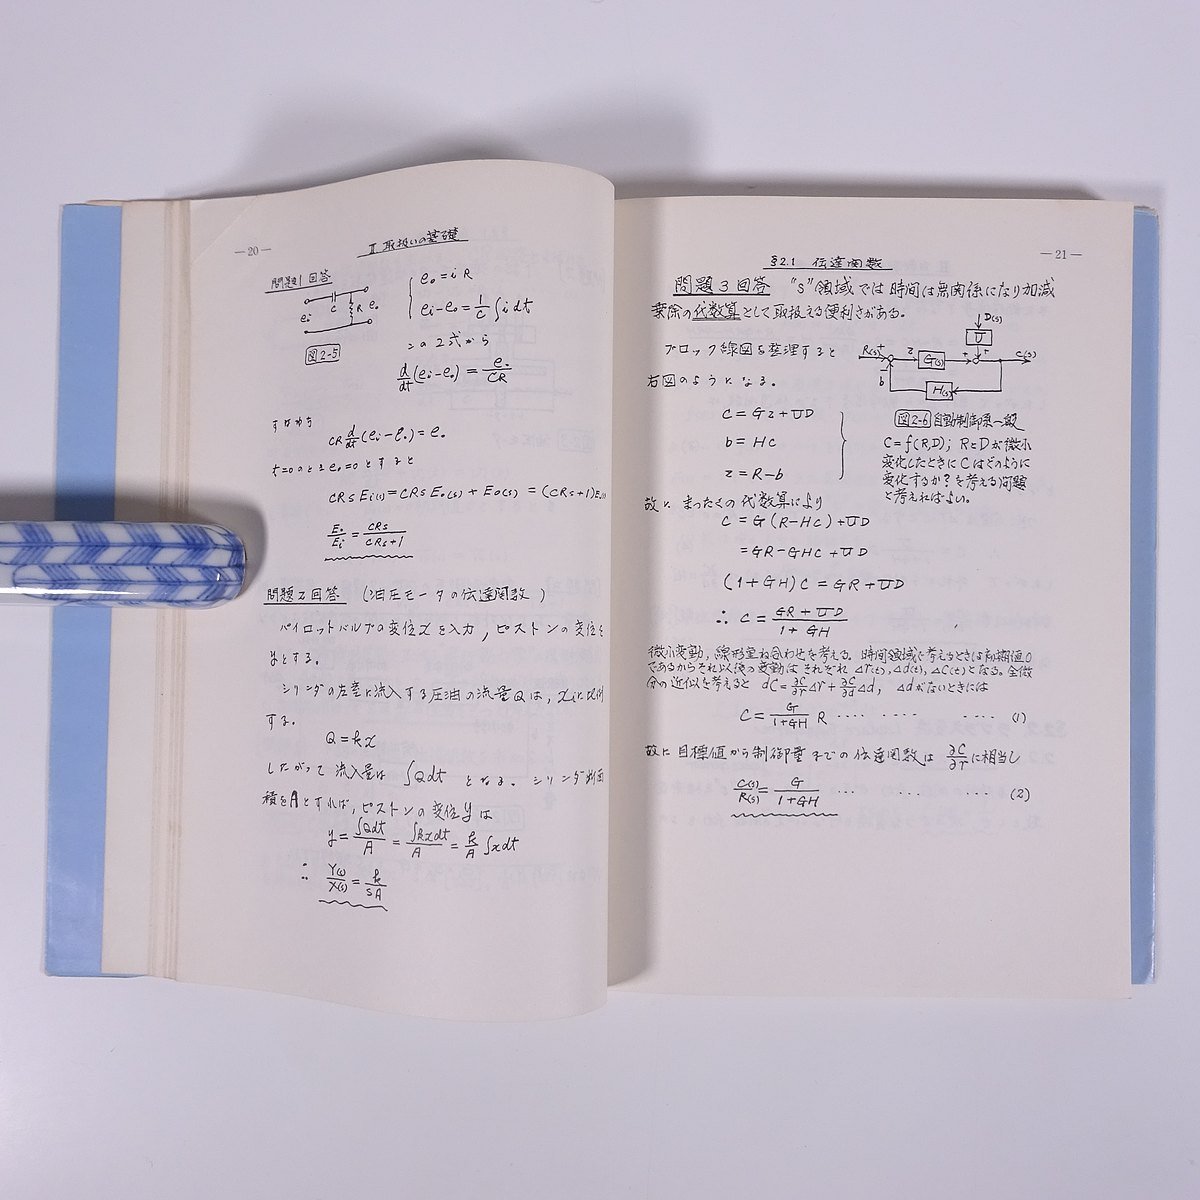 —20—
Ⅱ 取扱いの基礎
問題1回答
ei C R eo
図2-5
eo = iR
ei - eo = 1/C ∫i dt
この2式から
d/dt (ei - eo) = eo/CR
すなわち
CR d/dt (ei - eo) = eo
t=0のときeo=0とすると
CRs Ei(s) = CRs Eo(s) + Eo(s) = (CRs+1)Eo(s)
Eo/Ei = CRs/CRs+1
問題2回答 (油圧モータの伝達関数)
パイロットバルブの変位xを入力,ピストンの変位を
yとする。
シリンダの左室に流入する圧油の流量Qは,xに比例
する。
Q = kx
したがって流入量は ∫Qdt となる。シリンダ断面
積をAとすれば,ピストンの変位yは
y = ∫Qdt/A = ∫kxdt/A = k/A ∫xdt
∴ Y(s)/X(s) = k/sA
—21—
§2.1 伝達関数
問題3回答 "S"領域では時間は無関係になり加減
乗除の代数算として取扱える便利さがある。
ブロック線図を整理すると
右図のようになる。
D(s)
U
R(s) + z G(s) + + C(s)
b
H(s)
図2-6 自動制御系一般
C = Gz + UD
b = HC
z = R - b
C=f(R,D); RとDが微小
変化したときにCはどのように
変化するか?を考える問題
と考えればよい。
故に まったくの代数算により
C = G(R-HC) + UD
= GR - GHC + UD
(1+GH)C = GR + UD
∴ C = GR+UD/1+GH
微小変動,線形重ね合わせを考える。時間領域で考えるときは初期値0
であるからそれ以後の変動はそれぞれ Δr(t), Δd(t), ΔC(t)となる。全微
分の近似を考えると dC = ∂C/∂r Δr + ∂C/∂d Δd, Δdがないときには
C = G/1+GH R ···· ···· ···· (1)
故に目標値から制御量までの伝達関数は ∂C/∂r に相当し
C(s)/R(s) = G/1+GH ···· ···· ···· (2)